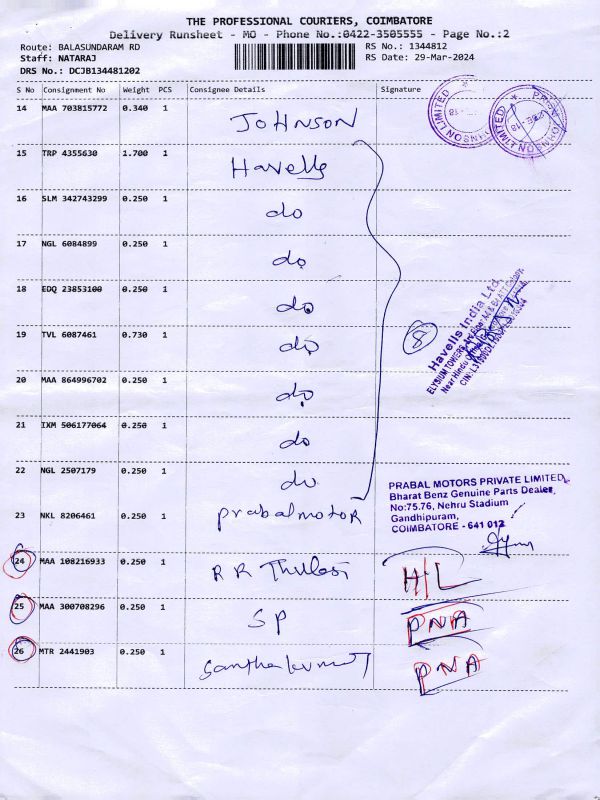 THE PROFESSIONAL COURIERS, COIMBATORE
Delivery Runsheet - MO - Phone No.:0422-3505555 - Page No.:2
Route: BALASUNDARAM RD RS No.: 1344812
Staff: NATARAJ RS Date: 29-Mar-2024
DRS No.: DCJB134481202
S No Consignment No Weight PCS Consignee Details Signature
14 MAA 703815772 0.340 1 JOHNSON
15 TRP 4355630 1.700 1 Havells
16 SLM 342743299 0.250 1 do
17 NGL 6084899 0.250 1 do
18 EDQ 23853100 0.250 1 do
19 TVL 6087461 0.730 1 do
8
Havells India Ltd.
ELYSIUM TOWERS
Near Hindu
20 MAA 864996702 0.250 1 do
21 IXM 506177064 0.250 1 do
22 NGL 2507179 0.250 1 do
23 NKL 8206461 0.250 1 Prabalmotor
PRABAL MOTORS PRIVATE LIMITED
Bharat Benz Genuine Parts Dealer,
No:75.76, Nehru Stadium
Gandhipuram,
COIMBATORE - 641 012
24 MAA 108216933 0.250 1 RR Thulasi H/L
25 MAA 300708296 0.250 1 SP PNA
26 MTR 2441903 0.250 1 Santhakumar PNA